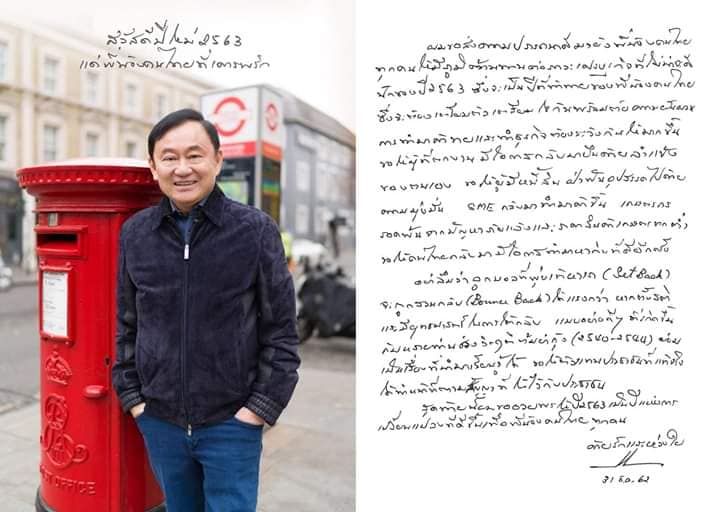 สวัสดีปีใหม่ 2563
แด่พี่น้องคนไทยที่เคารพรัก
POST OFFICE
ผมขอส่งความปรารถนาดีมายังพี่น้องคนไทย
ทุกคนให้มีภูมิต้านทานต่อภาวะเศรษฐกิจที่ไม่ค่อยดี
นักของปี 2563 ซึ่งจะเป็นปีที่ท้าทายของพี่น้องคนไทย
ซึ่งจะต้องเตรียมตัว เตรียมใจกันพร้อมด้วยความ
การทำมาค้าขายและทำธุรกิจต้องระวังกันให้มากขึ้น
ขอให้ผู้ที่ตกงานมีโอกาสกลับมายืนด้วยลำแข้ง
ของตนเอง ขอให้ผู้มีหนี้สิน ฝ่าฟันอุปสรรคไปด้วย
ความมุ่งมั่น SME กลับมาทำมาค้าขึ้น เกษตรกร
รอดพ้นจากปัญหาภัยแล้งและราคาสินค้าเกษตรตกต่ำ
ขอให้คนไทยกลับมามีโอกาสทำมาหากินที่ดีอีกครั้ง
อย่าลืมว่าลูกบอลที่พุ่งเข้ามา (Set Back)
จะถูกสวนกลับ (Bounce Back) ได้แรงกว่า หากตั้งสติ
และมียุทธศาสตร์ในการโต้กลับ แบบอย่างดีๆ ที่เกิดขึ้น
กับหลายท่านช่วงวิกฤติต้มยำกุ้ง (2540-2544) ย่อม
เป็นเรื่องที่นำมาเรียนรู้ได้ ขอให้ผู้แทนประชาชนที่แท้จริง
ได้ทำหน้าที่ตามสัญญาที่ให้ไว้กับประชาชน
สุดท้ายนี้ผมขออวยพรให้ปี 2563 เป็นปีแห่งการ
เปลี่ยนแปลงที่ดีขึ้นเพื่อพี่น้องคนไทยทุกคน
ด้วยรักและห่วงใย
31 ธ.ค. 62